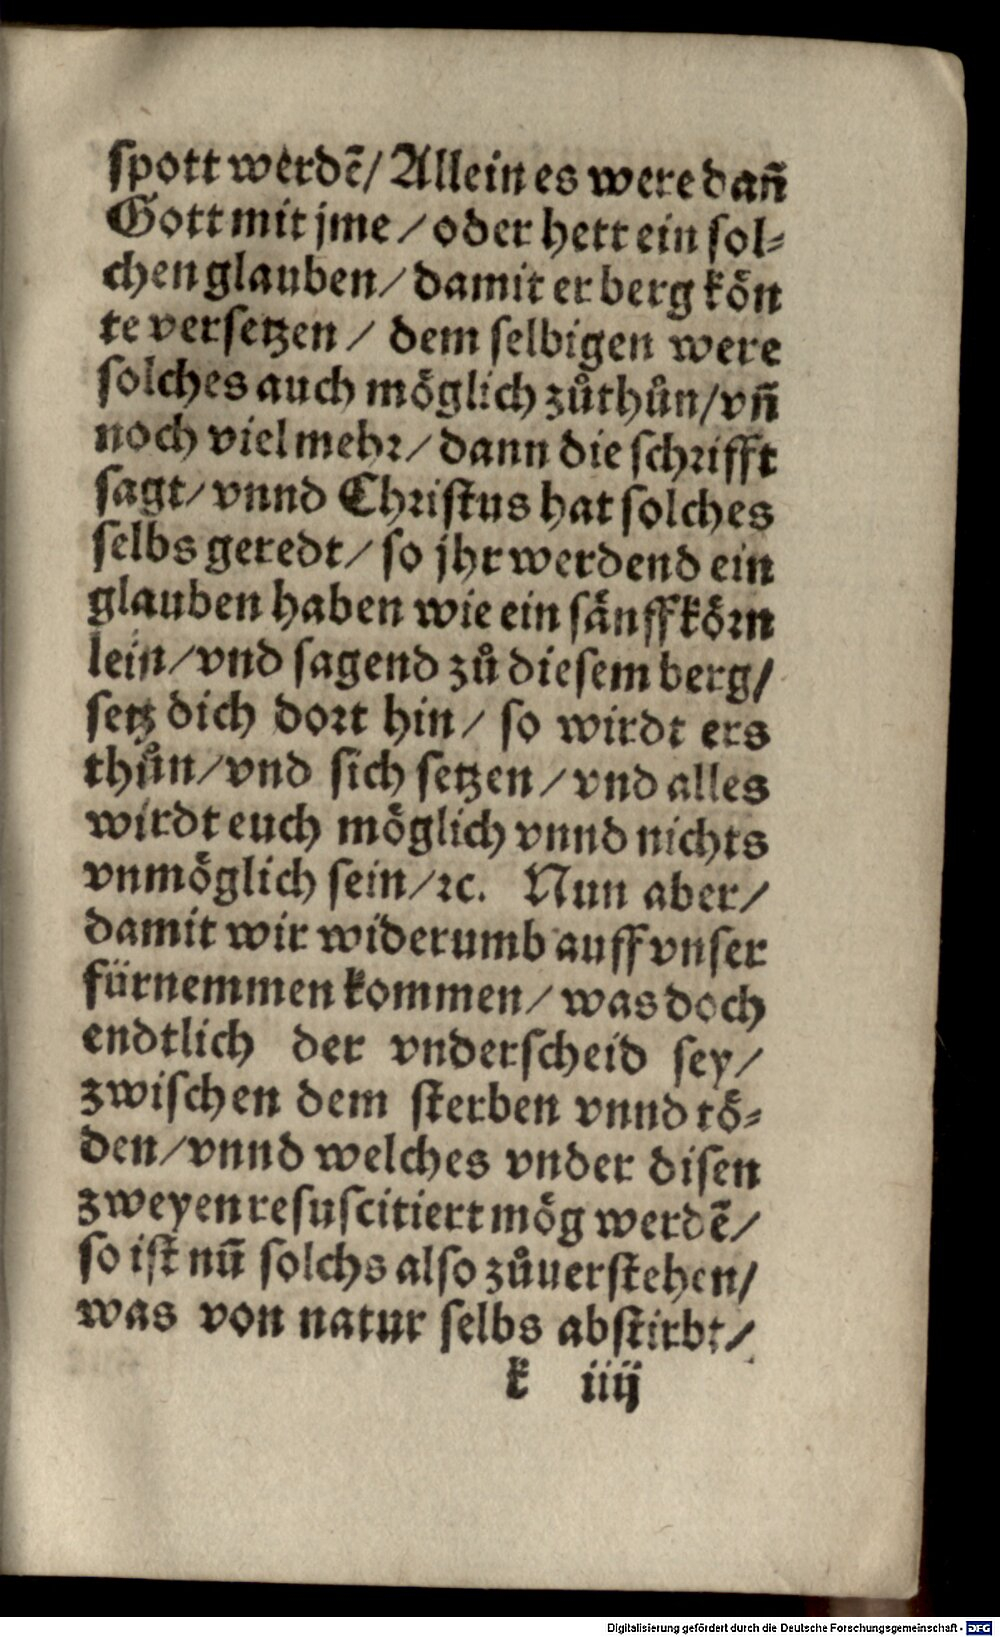 spott werdẽ/ Allein es were dañ
Gott mit jme / oder hett ein sol⸗
chen glauben/ damit er berg koͤn
te versetzen / dem selbigen were
solches auch moͤglich zuͦthuͦn/vñ
noch viel mehr/ dann die schrifft
sagt/ vnnd Christus hat solches
selbs geredt/ so jhr werdend ein
glauben haben wie ein saͤnffkoͤrn
lein/vnd sagend zuͦ diesem berg/
setz dich dort hin/ so wirdt ers
thuͦn/vnd sich setzen /vnd alles
wirdt euch moͤglich vnnd nichts
vnmoͤglich sein/ꝛc. Nun aber/
damit wir widerumb auff vnser
fürnemmen kommen/ was doch
endtlich der vnderscheid sey/
zwischen dem sterben vnnd toͤ⸗
den/vnnd welches vnder disen
zweyen resuscitiert moͤg werdẽ/
so ist nũ solchs also zuͦuerstehen/
was von natur selbs abstirbt/
k iiij
Digitalisierung gefördert durch die Deutsche Forschungsgemeinschaft - DFG